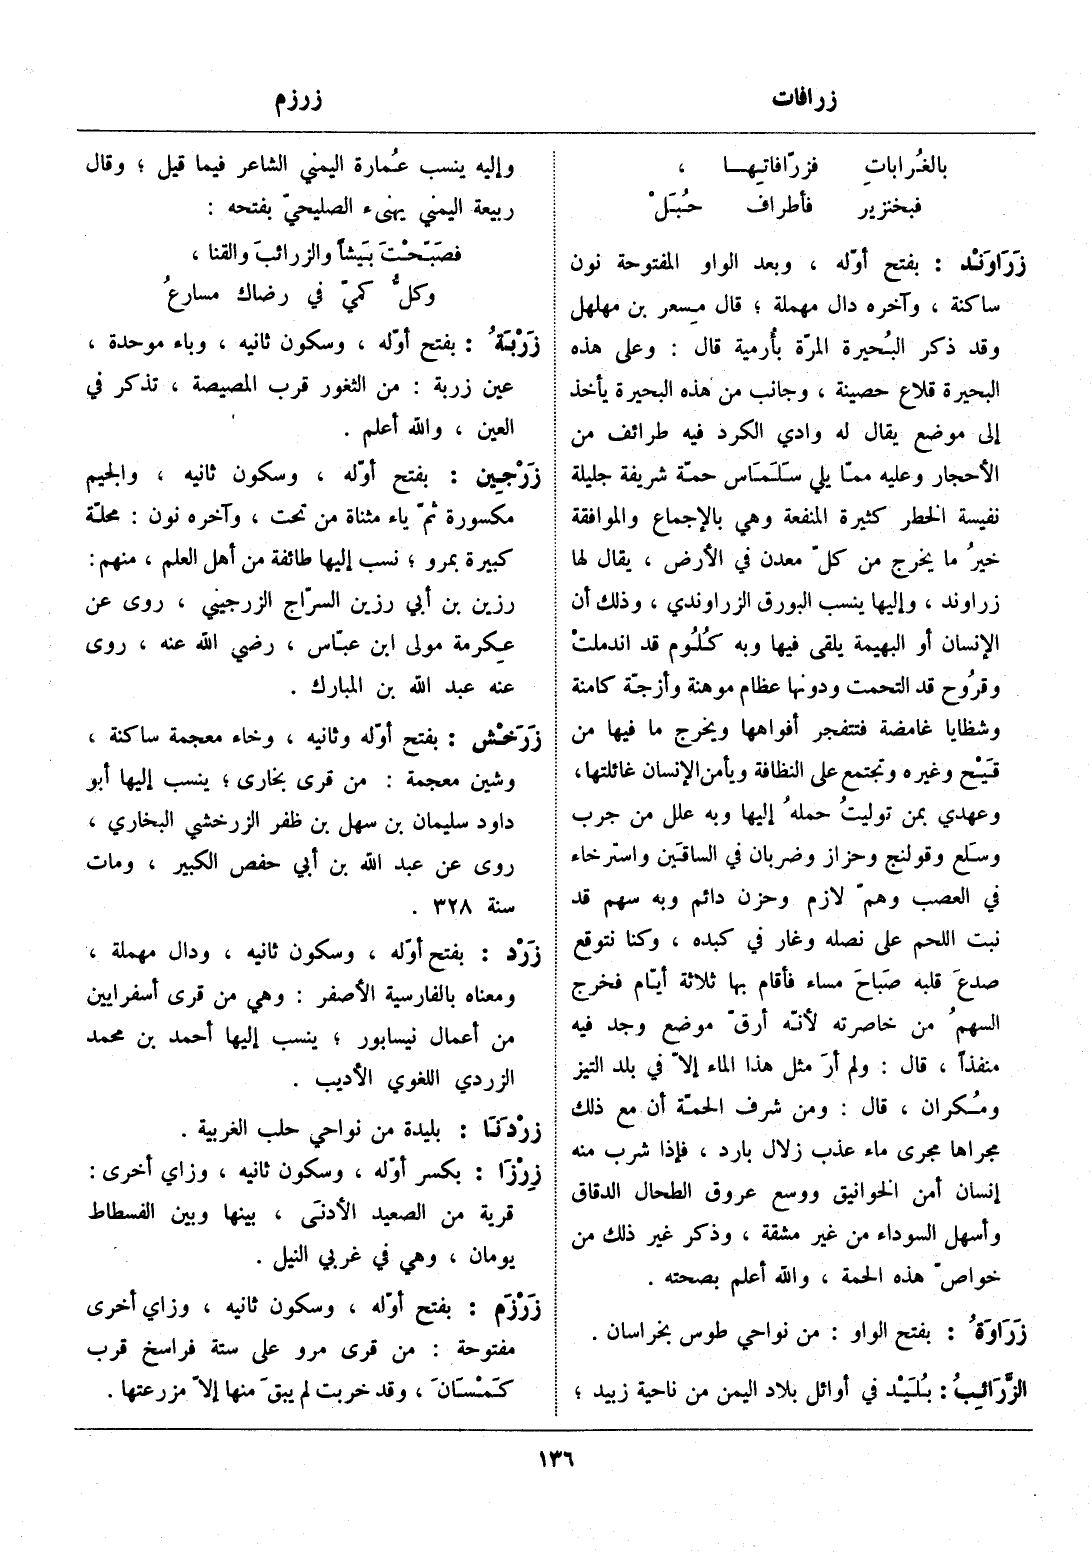 زرافات
زرزم
بالغُرابات فزرّافاتِهـا ،
فبخنزير فأطراف حُبَلْ
زَرَاوَنْد : بفتح أوّله ، وبعد الواو المفتوحة نون
ساكنة ، وآخره دال مهملة ؛ قال مِسعر بن مهلهل
وقد ذكر البُحيرة المرّة بأُرمية قال : وعلى هذه
البحيرة قلاع حصينة ، وجانب من هذه البحيرة يأخذ
إلى موضع يقال له وادي الكرد فيه طرائف من
الأحجار وعليه ممّا يلي سَلَمَاس حمّة شريفة جليلة
نفيسة الخطر كثيرة المنفعة وهي بالإجماع والموافقة
خيرُ ما يخرج من كلّ معدن في الأرض ، يقال لها
زراوند ، وإليها ينسب البورق الزراوندي ، وذلك أن
الإنسان أو البهيمة يلقى فيها وبه كُلُوم قد اندملتْ
وقُروح قد التحمت ودونها عظام موهنة وأزجّة كامنة
وشظايا غامضة فتتفجر أفواهها ويخرج ما فيها من
قَيْح وغيره وتجتمع على النظافة ويأمن الإنسان غائلتها،
وعهدي بمن توليتُ حملهُ إليها وبه علل من جرب
وسَلَع وقولنج وحزاز وضربان في الساقَين واسترخاء
في العصب وهمّ لازم وحزن دائم وبه سهم قد
نبت اللحم على نصله وغار في كبده ، وكنا نتوقع
صدعَ قلبه صَباحَ مساء فأقام بها ثلاثة أيّام فخرج
السهمُ من خاصرته لأنّه أرقّ موضع وجد فيه
منفذاً ، قال : ولم أرَ مثل هذا الماء إلاّ في بلد التيز
ومُكران ، قال : ومن شرف الحمّة أن مع ذلك
مجراها مجرى ماء عذب زلال بارد ، فإذا شرب منه
إنسان أمن الخوانيق ووسع عروق الطحال الدقاق
وأسهل السوداء من غير مشقة ، وذكر غير ذلك من
خواصّ هذه الحمة ، والله أعلم بصحته .
زَرَاوَةُ : بفتح الواو : من نواحي طوس بخراسان .
الزَّرَائبُ : بُلَيْد في أوائل بلاد اليمن من ناحية زبيد ؛
وإليه ينسب عُمارة اليمني الشاعر فيما قيل ؛ وقال
ربيعة اليمني يهنىء الصليحيّ بفتحه :
فصَبّحْتَ بَيشاً والزرائبَ والقنا ،
وكلُّ كميّ في رضاك مسارعُ
زَرْبَةُ : بفتح أوّله ، وسكون ثانيه ، وباء موحدة ،
عين زربة : من الثغور قرب المصيصة ، تذكر في
العين ، والله أعلم .
زَرْجِين : بفتح أوّله ، وسكون ثانيه ، والجيم
مكسورة ثمّ ياء مثناة من تحت ، وآخره نون : محلّة
كبيرة بمرو ؛ نسب إليها طائفة من أهل العلم ، منهم :
رزين بن أبي رزين السرّاج الزرجيني ، روى عن
عِكرمة مولى ابن عبّاس ، رضي الله عنه ، روى
عنه عبد الله بن المبارك .
زَرَخْش : بفتح أوّله وثانيه ، وخاء معجمة ساكنة ،
وشين معجمة : من قرى بخارى ؛ ينسب إليها أبو
داود سليمان بن سهل بن ظفر الزرخشي البخاري ،
روى عن عبد الله بن أبي حفص الكبير ، ومات
سنة ٣٢٨ .
زَرْد : بفتح أوّله ، وسكون ثانيه ، ودال مهملة ،
ومعناه بالفارسية الأصفر : وهي من قرى أسفرايين
من أعمال نيسابور ؛ ينسب إليها أحمد بن محمد
الزردي اللغوي الأديب .
زرْدَنَا : بليدة من نواحي حلب الغربية .
زِرْزَا : بكسر أوّله ، وسكون ثانيه ، وزاي أخرى :
قرية من الصعيد الأدنَى ، بينها وبين الفسطاط
يومان ، وهي في غربي النيل .
زَرْزَم : بفتح أوّله ، وسكون ثانيه ، وزاي أخرى
مفتوحة : من قرى مرو على ستة فراسخ قرب
كَمْسَانَ ، وقد خربت لم يبقَ منها إلاّ مزرعتها .
١٣٦